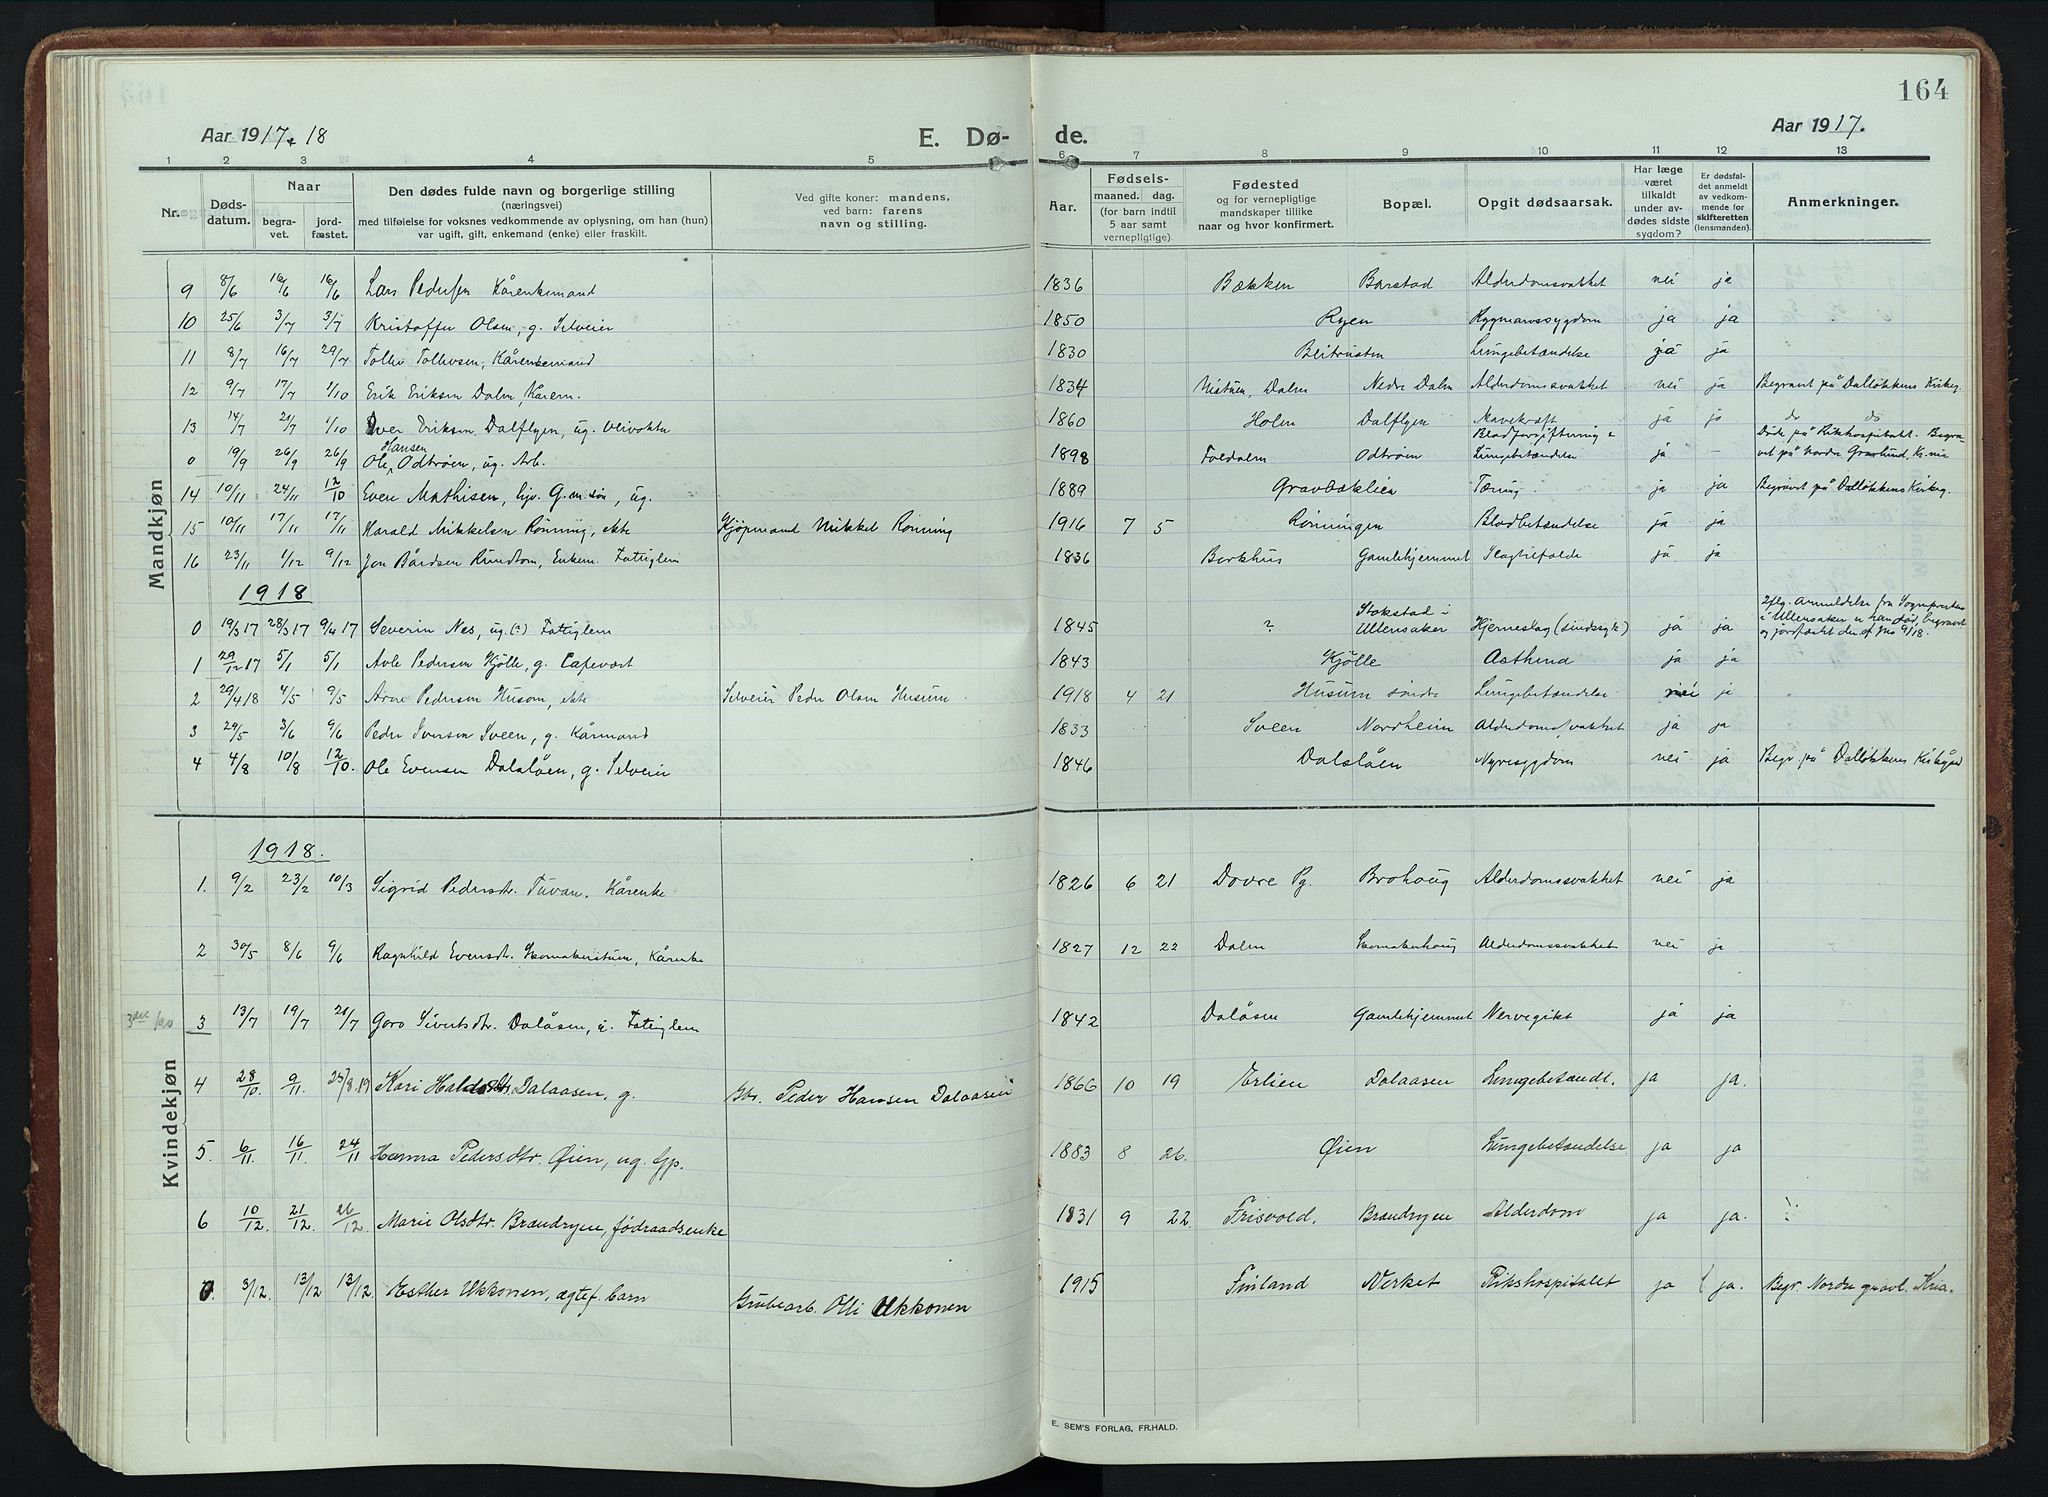 164
Aar 1917 & 18
E. Dø-
de.
Aar 1917.
1 2 3 4 5 6 7 8 9 10 11 12 13
Nr. Døds-datum. Naar begra-vet. jord-fæstet. Den dødes fulde navn og borgerlige stilling (næringsvei) med tilføielse for voksnes vedkommende av oplysning, om han (hun) var ugift, gift, enkemand (enke) eller fraskilt. Ved gifte koner: mandens, ved barn: farens navn og stilling. Aar. Fødsels-maaned. dag. (for barn indtil 5 aar samt vernepligtige). Fødested og for vernepligtige mandskaper tillike naar og hvor konfirmert. Bopæl. Opgit dødsaarsak. Har læge været tilkaldt under av-dødes sidste sygdom? Er dødsfal-det anmeldt av vedkom-mende for skifteretten (lensmanden). Anmerkninger.
Mandkjøn
9 8/6 16/6 16/6 Lars Pedersen Kårenkemand 1836 Bækken Barstad Alderdomsvakket nei ja
10 25/6 3/7 3/7 Kristoffer Olsen, g. Selveier 1850 Ryen Rygmarvssygdom ja ja
11 8/7 16/7 29/7 Tollev Tollevsen, Kårenkemand 1830 Lungebetændelse ja ja
12 9/7 17/7 1/10 Erik Eriksen Dalen, Kårem. 1834 Uistuen, Dalen Nedre Dalen Alderdomssvakket nei ja Begravet på Dalløkkens Kirkeg.
13 14/7 21/7 1/10 Iver Eriksen Dalflyen, ug. 1860 Holen Dalflyen Mavekræft ja ja do do
0 19/9 26/9 26/9 Ole Hansen Odtrøen, ug. Arb. 1898 Foldalen Odtrøen Blodforgiftning & Lungebetændelse ja – Døde på Rikshospitalet. Begra-vet på Nordre Gravlund, Kr.nia
14 10/11 24/11 12/10 Even Mathisen, hjv. G.m.søn, ug. 1889 Gravbæklien Tæring ja ja Begravet på Dalløkkens Kirkeg.
15 10/11 17/11 17/11 Harald Mikkelsen Rønning, ekte Kjøpmand Mikkel Rønning 1916 7 5 Rønningen Blodbetændelse ja ja
16 23/11 1/12 9/12 Jon Bårdsen Rundtom, Enkem. Fattiglem 1836 Borkhus Gamlehjemmet Slagtilfælde ja ja
1918
0 19/3 17 28/3 17 9/4 17 Severin Nes, ug. (?) Fattiglem 1845 ? Stokstad i Ullensaker Hjerneslag (sindssyk) ja ja Iflg. Anmeldelse fra Sogneprestens i Ullensaker er han død, begravet og jordfæstet der
1 29/12 17 5/1 5/1 Avle Pedersen Kjølle, g. Cafevært 1843 Kjølle Asthma ja ja
2 29/4 18 4/5 9/5 Arne Pedersen Husom, ekte Selveier Peder Olsen Husum 1918 4 21 Husum søndre Lungebetændelse nei ja
3 29/5 3/6 9/6 Peder Iversen Sveen, g. Kårmand 1833 Sveen Nordheim Alderdomssvakket ja ja
4 4/8 10/8 12/10 Ole Evensen Dalsløen, g. Selveier 1846 Dalsløen Nyresygdom nei ja Begr på Dalløkkens Kirkegård
Kvindekjøn
1918.
1. 9/2 23/2 10/3 Sigrid Pedersdtr. Tuvan. Kårenke 1826 6 21 Dovre Pg. Brohoug Alderdomssvakket nei ja
2 30/5 8/6 9/6 Ragnhild Evensdtr. Skomakerstuen, Kårenke 1827 12 22 Dalen Skomakerhoug Alderdomssvakket nei ja
3 13/7 19/7 21/7 Goro Sivertsdtr. Dalåsen, u. Fattiglem 1842 Dalåsen Gamlehjemmet Nervegikt ja ja
4 28/10 9/11. 25/8.19 Kari Haldosdtr. Dalaasen, g. Gbr. Peder Hansen Dalaasen 1866 10 19 Erlien Dalaasen Lungebetændl. ja ja.
5. 6/11. 16/11 24/11 Hanna Pedersdtr. Øien, ug. Gp. 1883 8 26. Øien Lungebetændelse ja ja
6 10/12. 21/12. 26/12. Marie Olsdtr. Brændryen, føderaadsenke 1831 9 22. Frisvold. Brændryen Alderdom ja ja.
0. 3/12. 13/12 13/12 Esther Ukkonen, ægtef. barn Grubearb. Olli Ukkonen 1915 Finland Verket Rikshospitalet ja ja. Begr. Nordre gravl. Kria.
E. SEM'S FORLAG, FR.HALD.